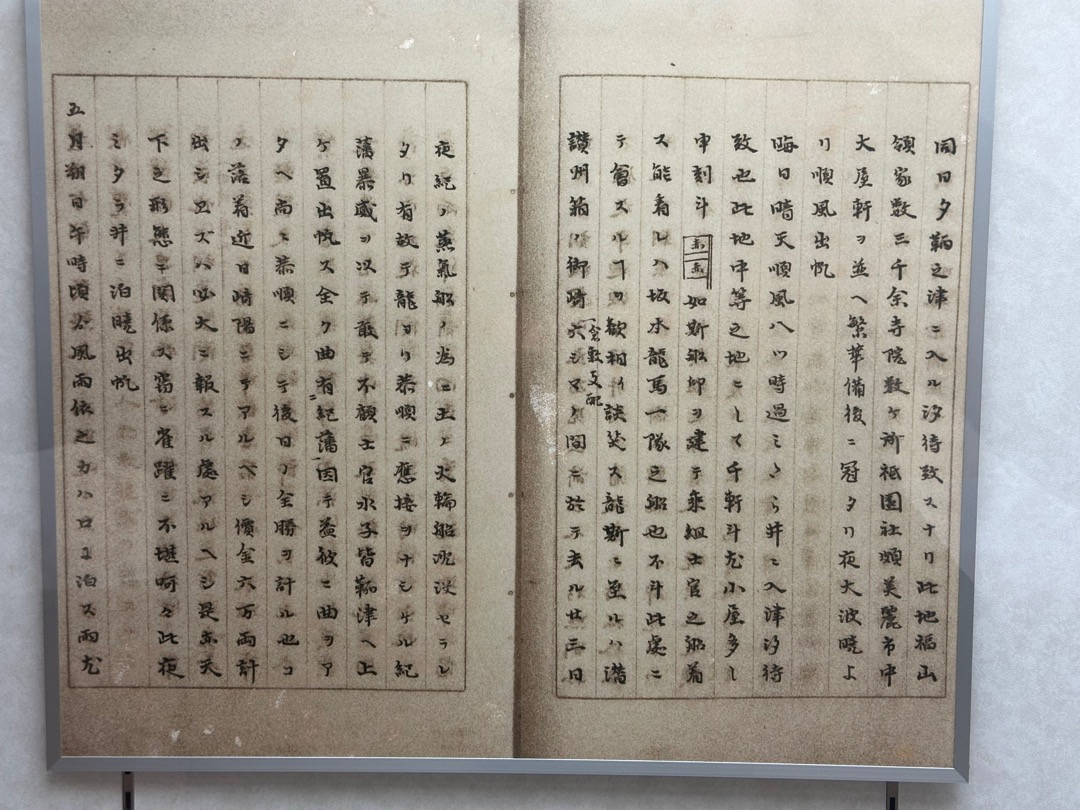 同日夕鞆之津ニ入ル汐待致スナリ此地福山
領家数三千余寺院数ヶ所祗園社頗美麗市中
大屋軒ヲ並ヘ繁華備後ニ冠タリ夜大波暁よ
り順風出帆
晦日晴天順風八ツ時過ミたらら井ニ入津汐待
致也此地中等之地ニして千軒斗尤小屋多し
申刻斗 如斯船印ヲ建テ乗組士官之船着
ス能看ルハ坂本龍馬一隊之船也不斗此處ニ
テ會スルヿヲ歓相互談笑ス龍斯ニ至ルハ讃
讃州箱ノ御崎ト 間ニ於テ去ル廿三日
夜紀ノ蒸氣船ノ為ニ土ノ火輪船沈没セラレ
タリ有故テ龍ヨリ恭順ニ應接ヲナシケル紀
藩暴威ヲ以テ敢テ不顧士官水子皆鞆津ヘ上
ケ置出帆ス全ク曲有ニ紀藩因テ益彼ニ曲ヲア
タヘ尚ニ恭順ニシテ後日ノ全勝ヲ計ル也コ
ノ落着近日崎陽ニテアルベシ價金六万両計
出シ旦ズハ必大ニ報スル處アルヘシ是亦天
下之形態ニ関係ス窃ニ雀躍ニ不堪呵々此夜
ミタラ井ニ泊暁出帆
五月朔日午時頃大風雨依之カハロニ泊ス雨尤